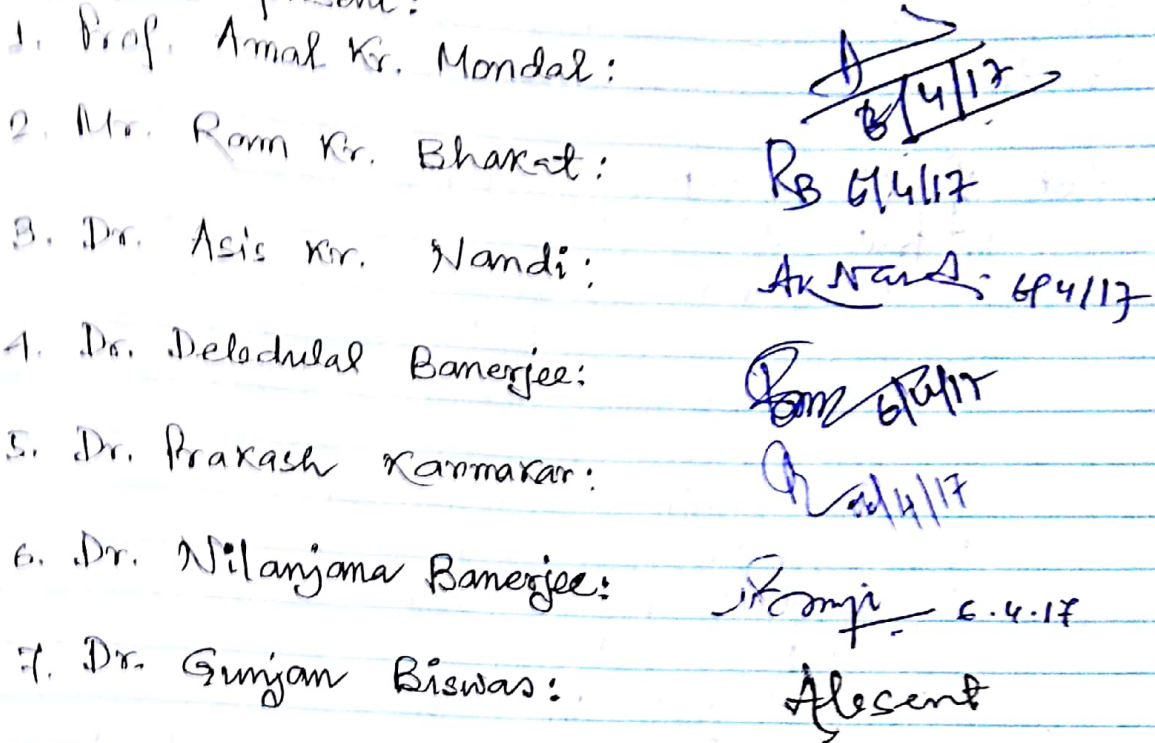 present:
1. Prof. Amal Kr. Mondal: 6/4/17
2. Mr. Ram Kr. Bhakat: RB 6/4/17
3. Dr. Asis Kr. Nandi: AK Nandi 6/4/17
4. Dr. Debdulal Banerjee: 6/4/17
5. Dr. Prakash Karmakar: /4/17
6. Dr. Nilanjana Banerjee: 6.4.17
7. Dr. Gunjan Biswas: Absent